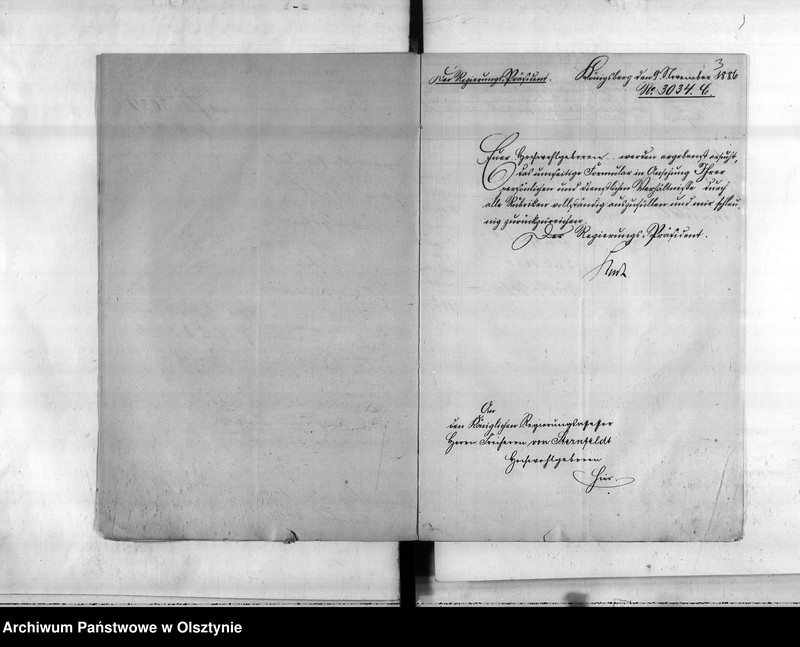 3
Der Regierungs-Präsident.
Königsberg den 9. November 1886
No. 3034. C.
Euer Hochwohlgeboren werden ergebenst ersucht,
das umseitige Formular in Ansehung Ihrer
persönlichen und dienstlichen Verhältnisse durch
alle Rubriken vollständig auszufüllen und mir schleu-
nig zurückzureichen.
Der Regierungs-Präsident.
An
den Königlichen Regierungsassessor
Herrn Freiherrn von Sternfeldt
Hochwohlgeboren
hier.
Archiwum Państwowe w Olsztynie